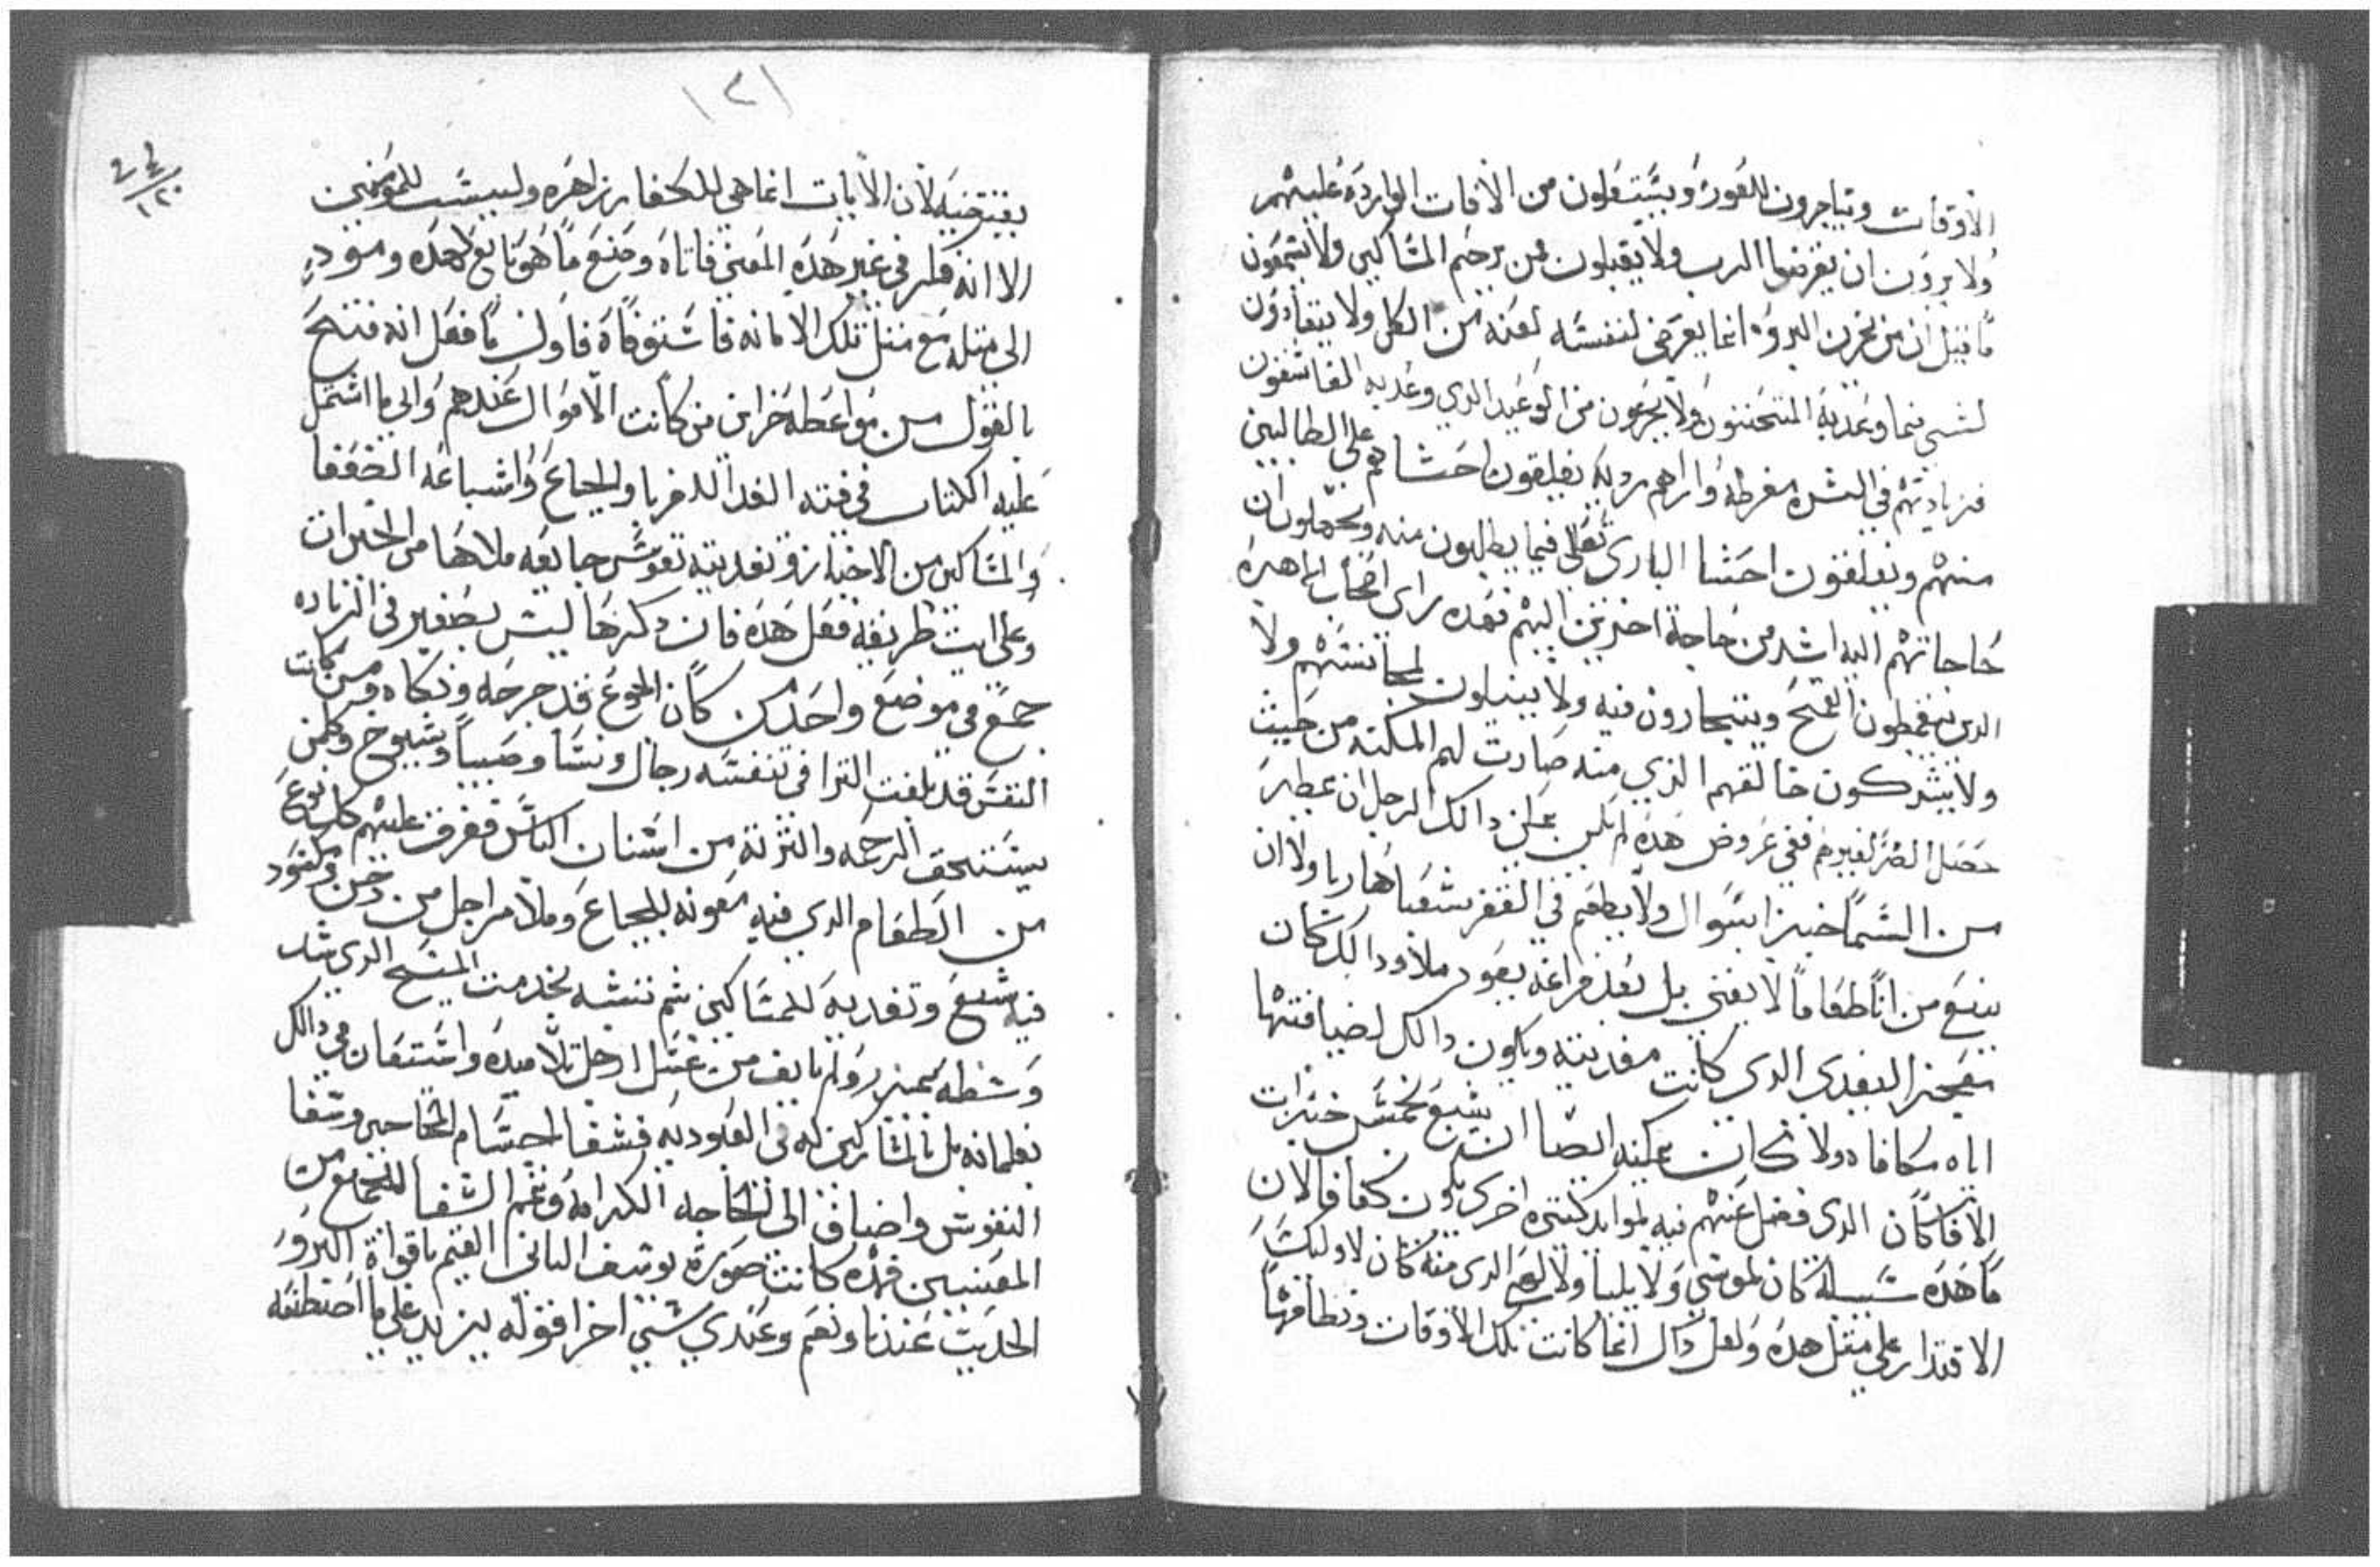 الاوقات ويتاجرون للغور ويستغلون من الافات الوارده عليهم
ولا يرون ان يقرضوا الرب ولا يقبلون من يرحم المساكين ولا يتبعون
ما قيل ان من يخزن البروه انما يعرض لنفسه لعنه من الكل ولا يتفادون
لشي فيما وعد به المتحننون ولا يجزعون من الوعيد الدي وعد به القاسفون
فزيادتهم في الشره مفرطه واراهم رديه يغلقون احشاهم على الطالبين
منهم ويغلقون احشا الباري تعالى فيما يطلبون منه ويجهلون ان
حاجاتهم اليه اشد من حاجة اخرين اليهم فهده راى اصحاب المهره
الدي يتقطون القمح ويتجارون فيه ولا يبدلون لمجانستهم ولا
ولا يشركون خالقهم الذي منه صارت لهم المكنه من حيث
حصل الضر لغيرهم ففي عروض هده لم يكن يمكن دالك الرجل ان يمطر
من السما خبزا بسوال ولا يطعم في القفر شعبا هاربا ولا ان
ينبع من انا طعاما لا يفنى بل بعد فراغه يعود ملاو دالك كان
بتعجيز المغدي الدي كانت مغديته ويكون دالك لضيافتها
اياه مكافاه ولا كان يمكنه ايضا ان يشبع بخمس خبزات
الافا كان الدى فضل عنهم فيه لموايد كتيره اخرى يكون كفافا لان
ما هده سبيله كان لموسي ولايليا ولا لهي الدى منه كان لاوليك
الاقتدار على متل هده ولعل دالك انما كانت تلك الاوقات ونظامها
١٢١
يقتضيه لان الايات انما هي للكفار زاهره وليست للمومنين
الا انه فكر في غير هده المعنى فاتاه وصنع ما هو تابع لهده ومود
الى مثله مع متل تلك الامانه فاستوفاه فاول ما فعل انه فتح
بالقول من مواعظه خزاين من كانت الاموال عندهم والى ما اشتمل
عليه الكتاب في فته الغدا للغربا والجياع واشباعه الضعفا
والمساكين من الاخبار وتغديته نفوس جايعه ملاها من الخيرات
وعلى ايت طريقه فعل هده فان دكرها ليس بصغير في الزياده
جمع في موضع واحد من كان الجوع قد جرحه ونكاه ومن كانت
النفس قد بلغت الترا في تنفسه رجال ونسا وصبيا وشيوخ وكلمن
يستحق الرحمه والترثه من اسنان الناس ففرق عليهم كل نوع
من الطعام الدي فيه معونه للجياع وملا مراجل من دخن وكفود
فيه شبع وتغديه للمساكين ثم تشبه بخدمت المسيح الدي شد
وسطه بميزر ولم يانف من غسل ارجل تلاميده واستعان في دالك
بغلمانه بل بالمشاركين له في العبوديه فشفا اجسام المحتاجين وشفا
النفوس واضاف الى الحاجه الكرامه ونعم الشفا المجتمع من
المعنيين فهده كانت صورة يوسف التاني القيم باقواة البرور
الحديت عندنا ونعم وعندي شي اخرا قوله يزيد على ما اصطنعه